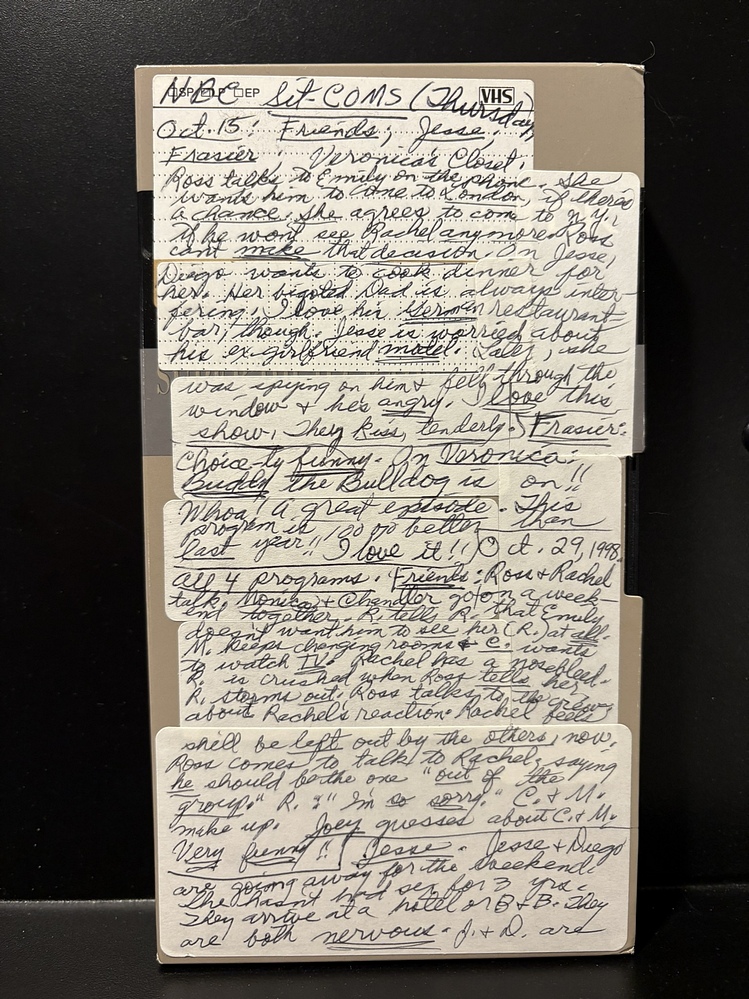 NBC Sit-COMS (Thursday)
□SP □LP □EP VHS
Oct. 15: Friends, Jesse.
Frasier; Veronica's Closet,
Ross talks to Emily on the phone. She
wants him to come to London, if there's
a chance. She agrees to come to N.Y.,
if he wont see Rachel anymore. Ross
cant make that decision. On Jesse,
Diego wants to cook dinner for
her. Her bigoted Dad is always inter-
fering. I love his German restaurant
bar, though. Jesse is worried about
his ex-girlfriend model. Later, she
was spying on him & fell through the
window & he's angry. I love this
show. They kiss, tenderly. Frasier:
Choice-ly funny. On Veronica:
Buddy the Bulldog is on!!
Whoa! A great episode. This
program is 100% better than
last year!! I love it!! Oct. 29, 1998.
All 4 programs. Friends: Ross & Rachel
talk. Monica & Chandler go on a week
end together. R. tells R. that Emily
doesn't want him to see her (R.) at all.
M. keeps changing rooms & C. wants
to watch TV. Rachel has a nosebleed.
R. is crushed when Ross tells her.
R. storms out. Ross talks to the others
about Rachel's reaction. Rachel feels
she'll be left out by the others, now.
Ross comes to talk to Rachel, saying
he should be the one "out of the
group." R.: "I'm so sorry." C. & M.
make up. Joey guesses about C. & M.
Very funny!! Jesse. Jesse & Diego
are going away for the weekend.
She hasn't had sex for 3 yrs.
They arrive at a hotel or B & B. They
are both nervous. J. & D. are